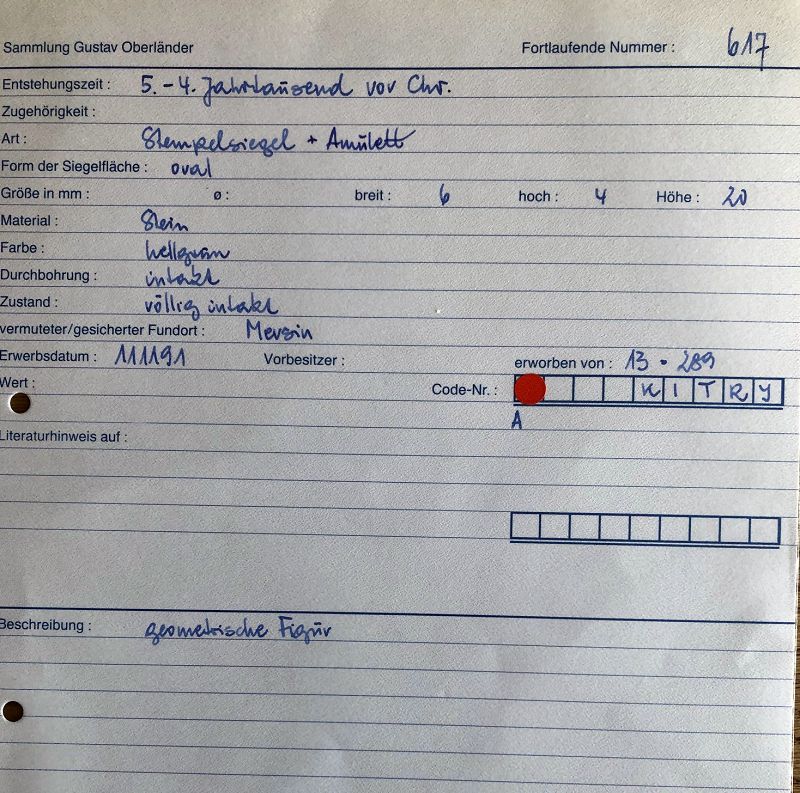 Sammlung Gustav Oberländer Fortlaufende Nummer : 617
Entstehungszeit : 5.-4. Jahrtausend vor Chr.
Zugehörigkeit :
Art : Stempelsiegel + Amulett
Form der Siegelfläche : oval
Größe in mm : ø : breit : 6 hoch : 4 Höhe : 20
Material : Stein
Farbe : hellgrau
Durchbohrung : intakt
Zustand : völlig intakt
vermuteter/gesicherter Fundort : Mersin
Erwerbsdatum : 111191 Vorbesitzer : erworben von : 13 - 289
Wert : Code-Nr. : K I T R Y
A
Literaturhinweis auf :
Beschreibung : geometrische Figur